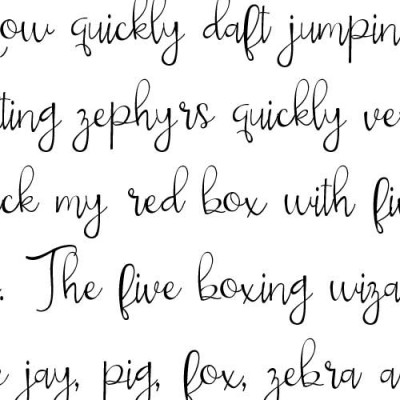 ow quickly daft jumpin
ting zephyrs quickly ve
ck my red box with fi
. The five boxing wiza
e jay, pig, fox, zebra a